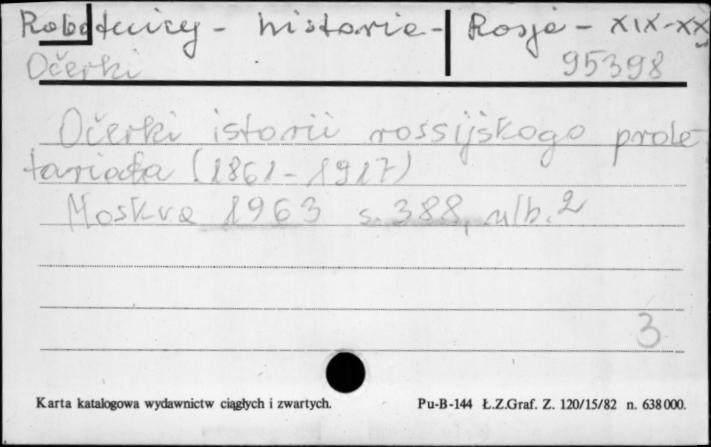 Robotnicy - historia - Rosja - XIX-XX
Očerki 95398
Očerki istorii rossijskogo prole
tariata (1861-1917)
Moskva 1963 s. 388, nlb. 2
3
Karta katalogowa wydawnictw ciągłych i zwartych. Pu-B-144 Ł.Z.Graf. Z. 120/15/82 n. 638000.